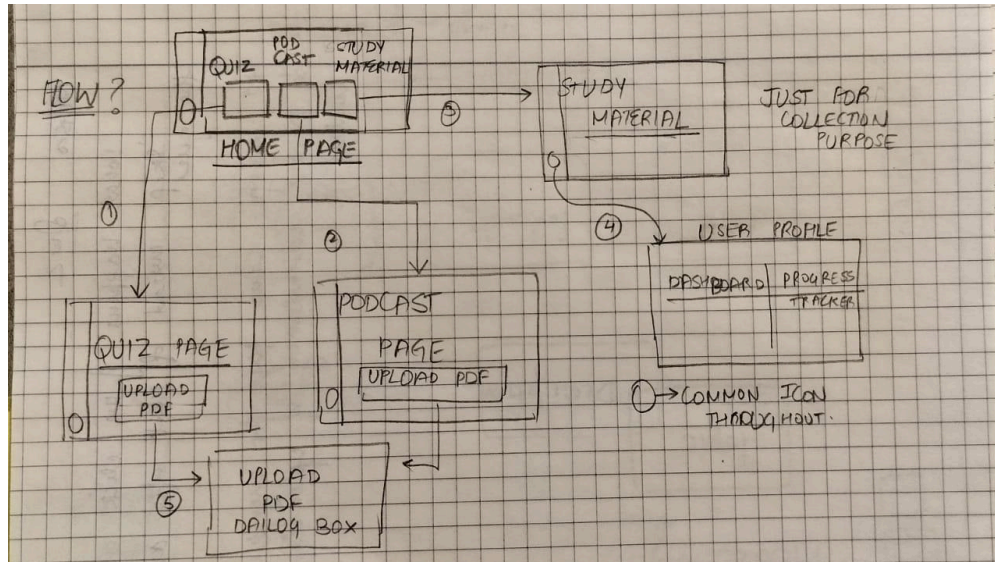 HOW?
QUIZ
POD
CAST
STUDY
MATERIAL
HOME PAGE
①
②
③
STUDY
MATERIAL
JUST FOR
COLLECTION
PURPOSE
④
USER PROFILE
DASHBOARD
PROGRESS
TRACKER
QUIZ PAGE
UPLOAD
PDF
PODCAST
PAGE
UPLOAD PDF
→ COMMON ICON
THROUGHOUT.
⑤
UPLOAD
PDF
DAILOG BOX